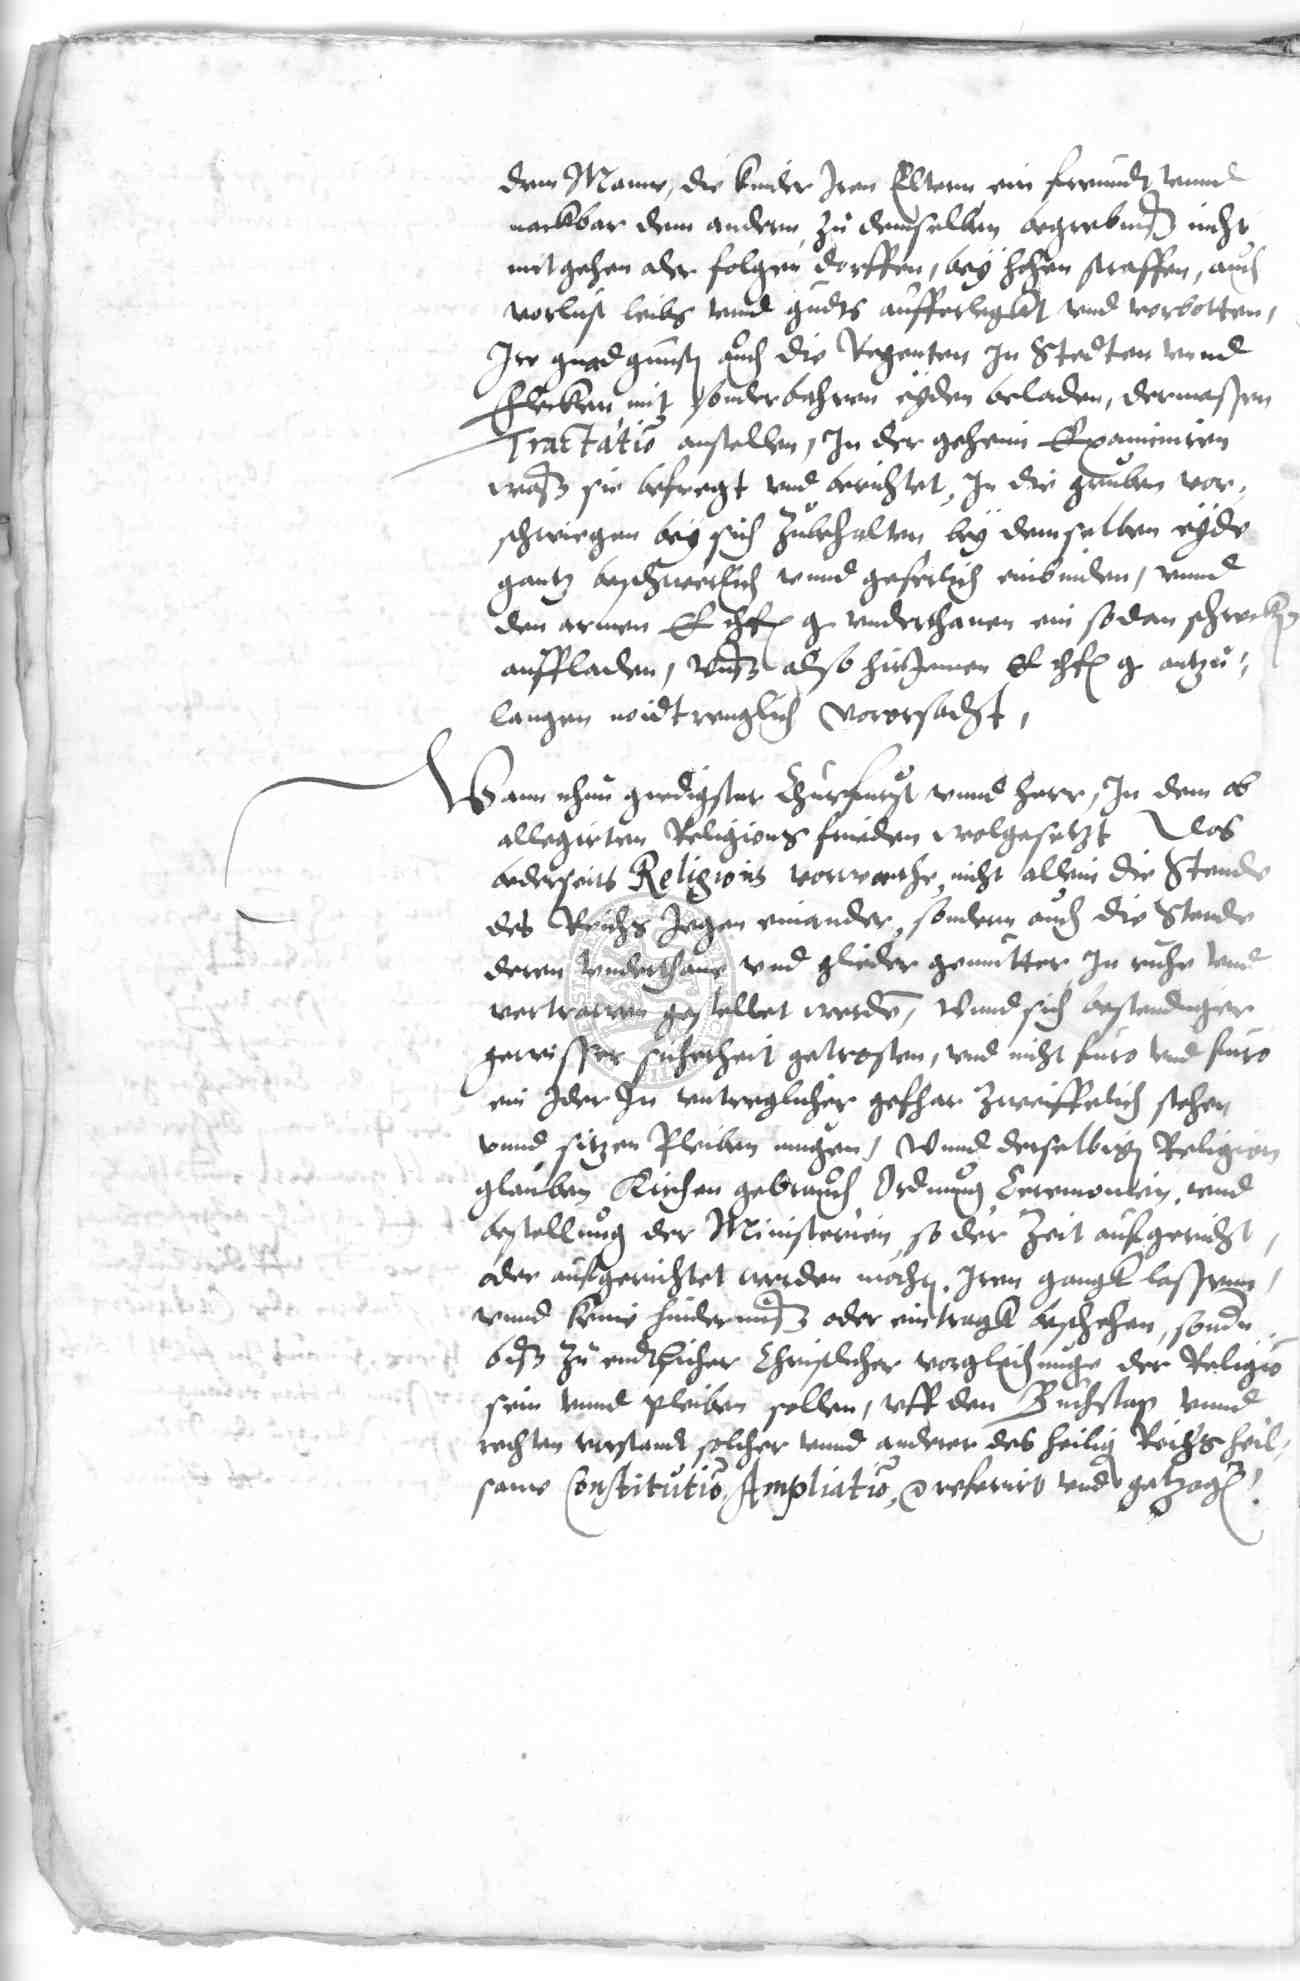 dem Manne, die kinder Iren Eltern ein freundt vnnd
nackbar dem andern, zu demselben begrebnuß nicht
mitgehen oder folgen dorffen, bey hohen straffen, auch
vorlust leibs vnnd gudts aufferlegkt vnd vorbotten,
Ire gnad gunst auch die Regenten In Stedten vnnd
Flecken mit sonderbahren eyden beladen, dermassen
Tractatio anstellen, In der geheim Examiniren
waß sie befragt vnd berichtet, In die gruben vor-
schwiegen bey sich zubehalten bey demselben eyde
gantz beschwerlich vnnd geferlich einbinden, vnnd
den armen E chf g vnderthanen ein sodan schrecken
auffladen, Vnß also hirJnnen E chf g antzu-
langen noidtrenglich vorursacht,
Wann nhun gnedigster Churfurst vnnd Herr, In dem ob
allegirten Religions frieden wolgesetzt Das
bederseits Religions vorwanthe, nicht allein die Stende
des Reichs Jegen einander, sondern auch die Stende
deren vnderthane vnd glieder gemutter, In ruhe vnd
vertrawen gestellet werde, Vnnd sich bestendiger
gewisser sicherheit getrosten, vnd nicht furo vnd furo
ein Jder In vntreglicher gefhar zweiffelich stehen
vnnd sitzen Pleiben mugen, Vnnd derselbig Religion
glauben Kirchen gebrauch Ordnung Ceremonien, vnd
bestellung der Ministerien, so der Zeit auffgericht,
oder auffgerichtet werden mochte, Iren gangk lassenn,
vnnd keine hindernuß oder eintragk beschehen, sondern
biß zu endtlicher Christlicher vorgleichunge der Religio
sein vnnd pleiben sollen, vff den Buchstap vnnd
rechten verstandt solcher vnnd anderer des heilig Reichs heil-
same Constitutio, Ampliatio, referirt vnd getzogen.